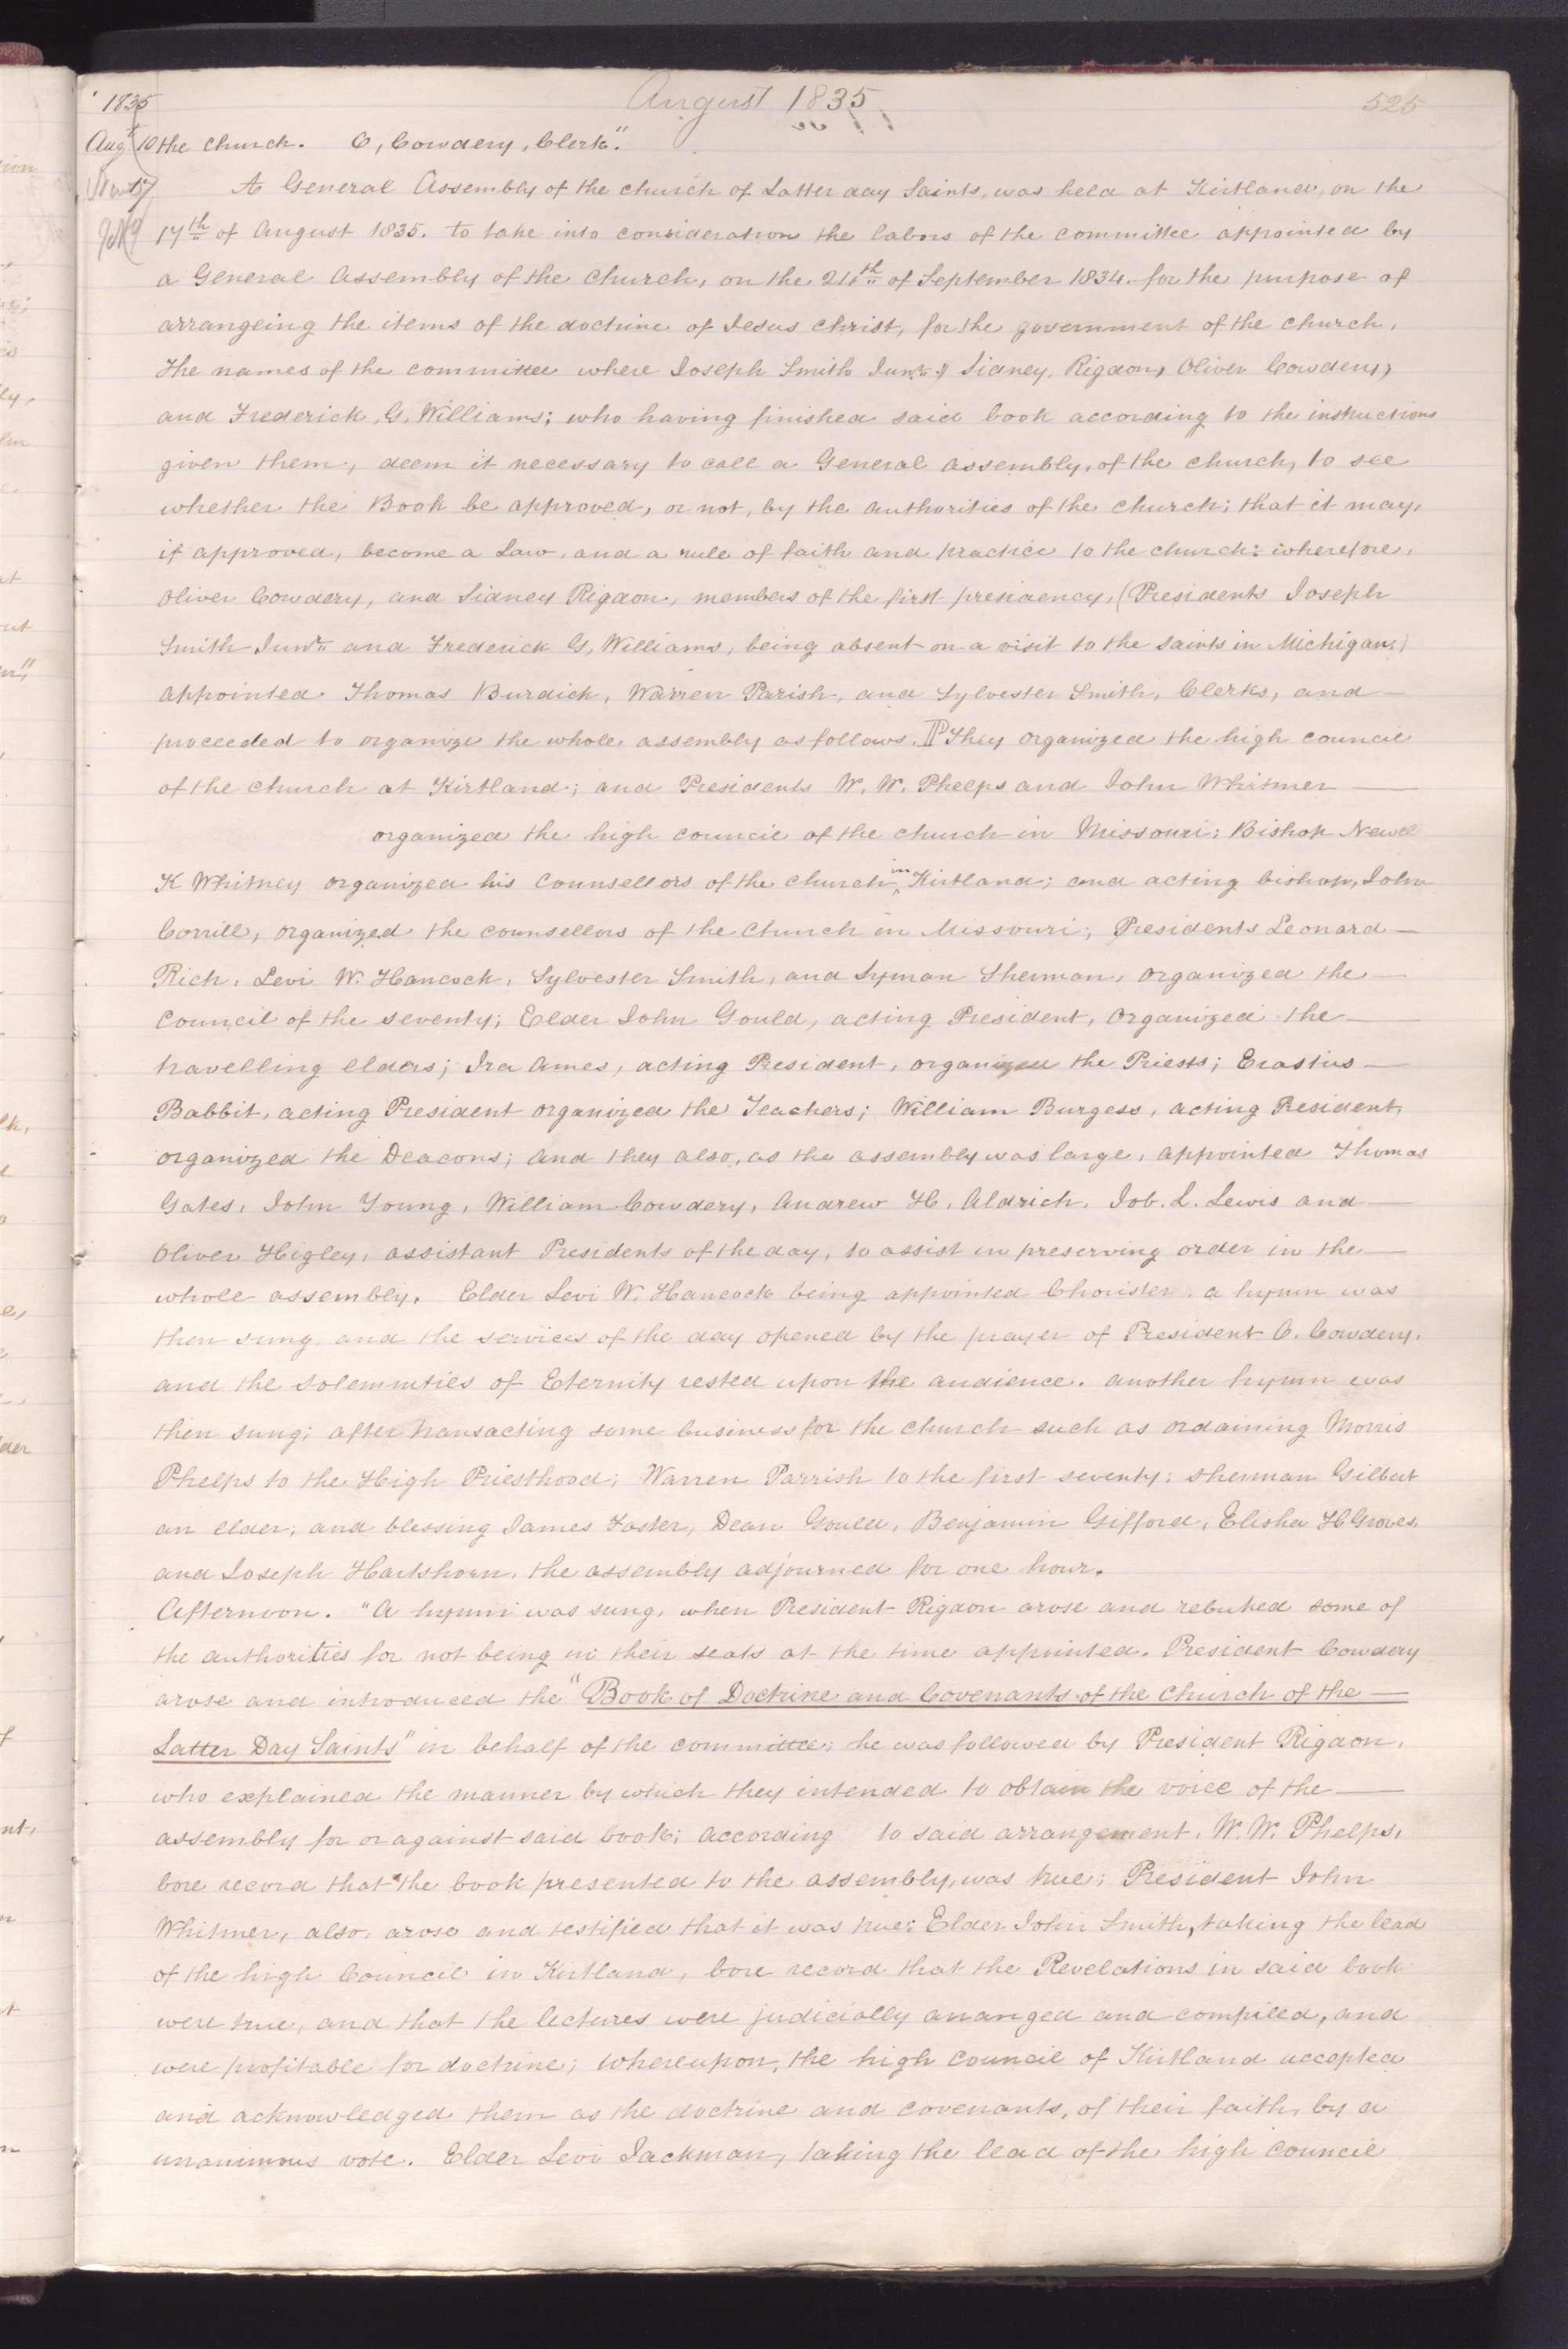 1835 August 1835 525
Augt 10 the church. O, Cowdery, Clerk."
17 A General Assembly of the church of Latter day Saints, was held at Kirtland, on the
17th of August 1835. to take into consideration the labors of the committee appointed by
a General Assembly of the church, on the 24th of September 1834. for the purpose of
arrangeing the items of the doctrine of Jesus Christ, for the government of the church,
The names of the committee where Joseph Smith Junr. Sidney, Rigdon, Oliver Cowdery,
and Frederick, G, Williams; who having finished said book according to the instructions
given them, deem it necessary to call a General assembly, of the church, to see
whether the Book be approved, or not, by the authorities of the church; that it may,
if approved, become a Law, and a rule of faith and practice to the church: wherefore,
Oliver Cowdery, and Sidney Rigdon, members of the first presidency, (Presidents Joseph
Smith Junr. and Frederick G, Williams, being absent on a visit to the saints in Michigan,)
appointed Thomas Burdick, Warren Parish, and Sylvester Smith, Clerks, and—
proceeded to organize the whole assembly as follows. ¶ They organized the high council
of the church at Kirtland; and Presidents W. W. Phelps and John Whitmer—
organized the high council of the church in Missouri: Bishop Newel
K Whitney organized his counsellors of the church in Kirtland; and acting bishop, John
Corrill, organized the counsellors of the church in Missouri; Presidents Leonard—
Rich, Levi W. Hancock, Sylvester Smith, and Lyman Sherman, organized the—
council of the seventy; Elder John Gould, acting President, organized the—
travelling elders; Ira Ames, acting President, organized the Priests; Erastus—
Babbit, acting President organized the Teachers; William Burgess, acting President,
organized the Deacons; and they also, as the assembly was large, appointed Thomas
Gates, John Young, William Cowdery, Andrew H, Aldrich, Job. L. Lewis and—
Oliver Higley, assistant Presidents of the day, to assist in preserving order in the—
whole assembly. Elder Levi W. Hancock being appointed Chorister, a hymn was
then sung and the services of the day opened by the prayer of President O. Cowdery,
and the solemnities of Eternity rested upon the audience. another hymn was
then sung; after transacting some business for the church such as ordaining Morris
Phelps to the High Priesthood; Warren Parrish to the first seventy; sherman Gilbert
an elder; and blessing James Foster, Dean Gould, Benjamin Gifford, Elisha H Groves,
and Joseph Hartshorn, the assembly adjourned for one hour.
Afternoon. "A hymn was sung, when President Rigdon arose and rebuked some of
the authorities for not being in their seats at the time appointed. President Cowdery
arose and introduced the "Book of Doctrine and Covenants of the church of the—
Latter Day Saints" in behalf of the committee; he was followed by President Rigdon,
who explained the manner by which they intended to obtain the voice of the—
assembly for or against said book; according to said arrangement, W. W. Phelps,
bore record that the book presented to the assembly, was true; President John
Whitmer, also, arose and testified that it was true: Elder John Smith, taking the lead
of the high Council in Kirtland, bore record that the Revelations in said book
were true, and that the lectures were judicially arranged and compiled, and
were profitable for doctrine; whereupon, the high council of Kirtland accepted
and acknowledged them as the doctrine and covenants, of their faith, by a
unanimous vote. Elder Levi Jackman, taking the lead of the high council